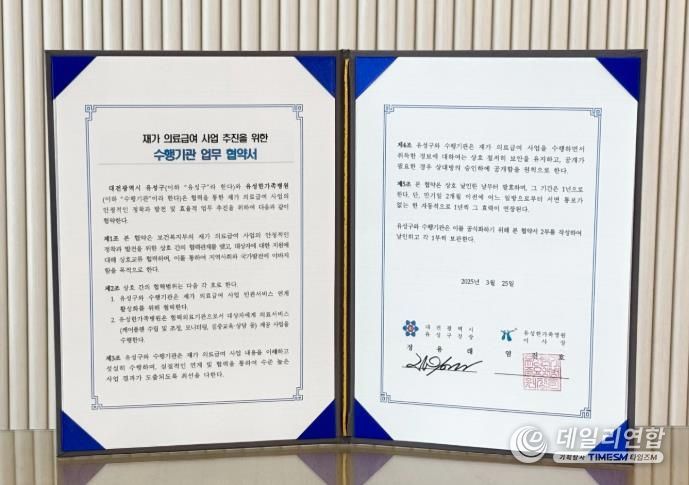 재가 의료급여 사업 추진을 위한
수행기관 업무 협약서
대전광역시 유성구(이하 "유성구"라 한다)와 유성한가족병원
(이하 "수행기관"이라 한다)은 협력을 통한 재가 의료급여 사업의
안정적인 정착과 발전 및 효율적 업무 추진을 위하여 다음과 같이
협약한다.
제1조 본 협약은 보건복지부의 재가 의료급여 사업의 안정적인
정착과 발전을 위한 상호 간의 협력관계를 맺고, 대상자에 대한 지원에
대해 상호교류 협력하며, 이를 통하여 지역사회와 국가발전에 이바지
함을 목적으로 한다.
제2조 상호 간의 협력범위는 다음 각 호로 한다.
1. 유성구와 수행기관은 재가 의료급여 사업 민관서비스 연계
활성화를 위해 협력한다.
2. 유성한가족병원은 협력의료기관으로서 대상자에게 의료서비스
(케어플랜 수립 및 조정, 모니터링, 집중교육·상담 등) 제공 사업을
수행한다.
제3조 유성구와 수행기관은 재가 의료급여 사업 내용을 이해하고
성실히 수행하며, 실질적인 연계 및 협력을 통하여 수준 높은
사업 결과가 도출되도록 최선을 다한다.
제4조 유성구와 수행기관은 재가 의료급여 사업을 수행하면서
취득한 정보에 대하여는 상호 철저히 보안을 유지하고, 공개가
필요한 경우 상대방의 승인하에 공개함을 원칙으로 한다.
제5조 본 협약은 상호 날인한 날부터 발효하며, 그 기간은 1년으로
한다. 단, 만기일 2개월 이전에 어느 일방으로부터 서면 통보가
없는 한 자동적으로 1년씩 그 효력이 연장된다.
유성구와 수행기관은 이를 공식화하기 위해 본 협약서 2부를 작성하여
날인하고 각 1부씩 보관한다.
2025년 3월 25일
대전광역시
유성구청장
정용래
유성한가족병원
이사장
염진호
데일리연합
기획탐사 TIMESM 타임즈M